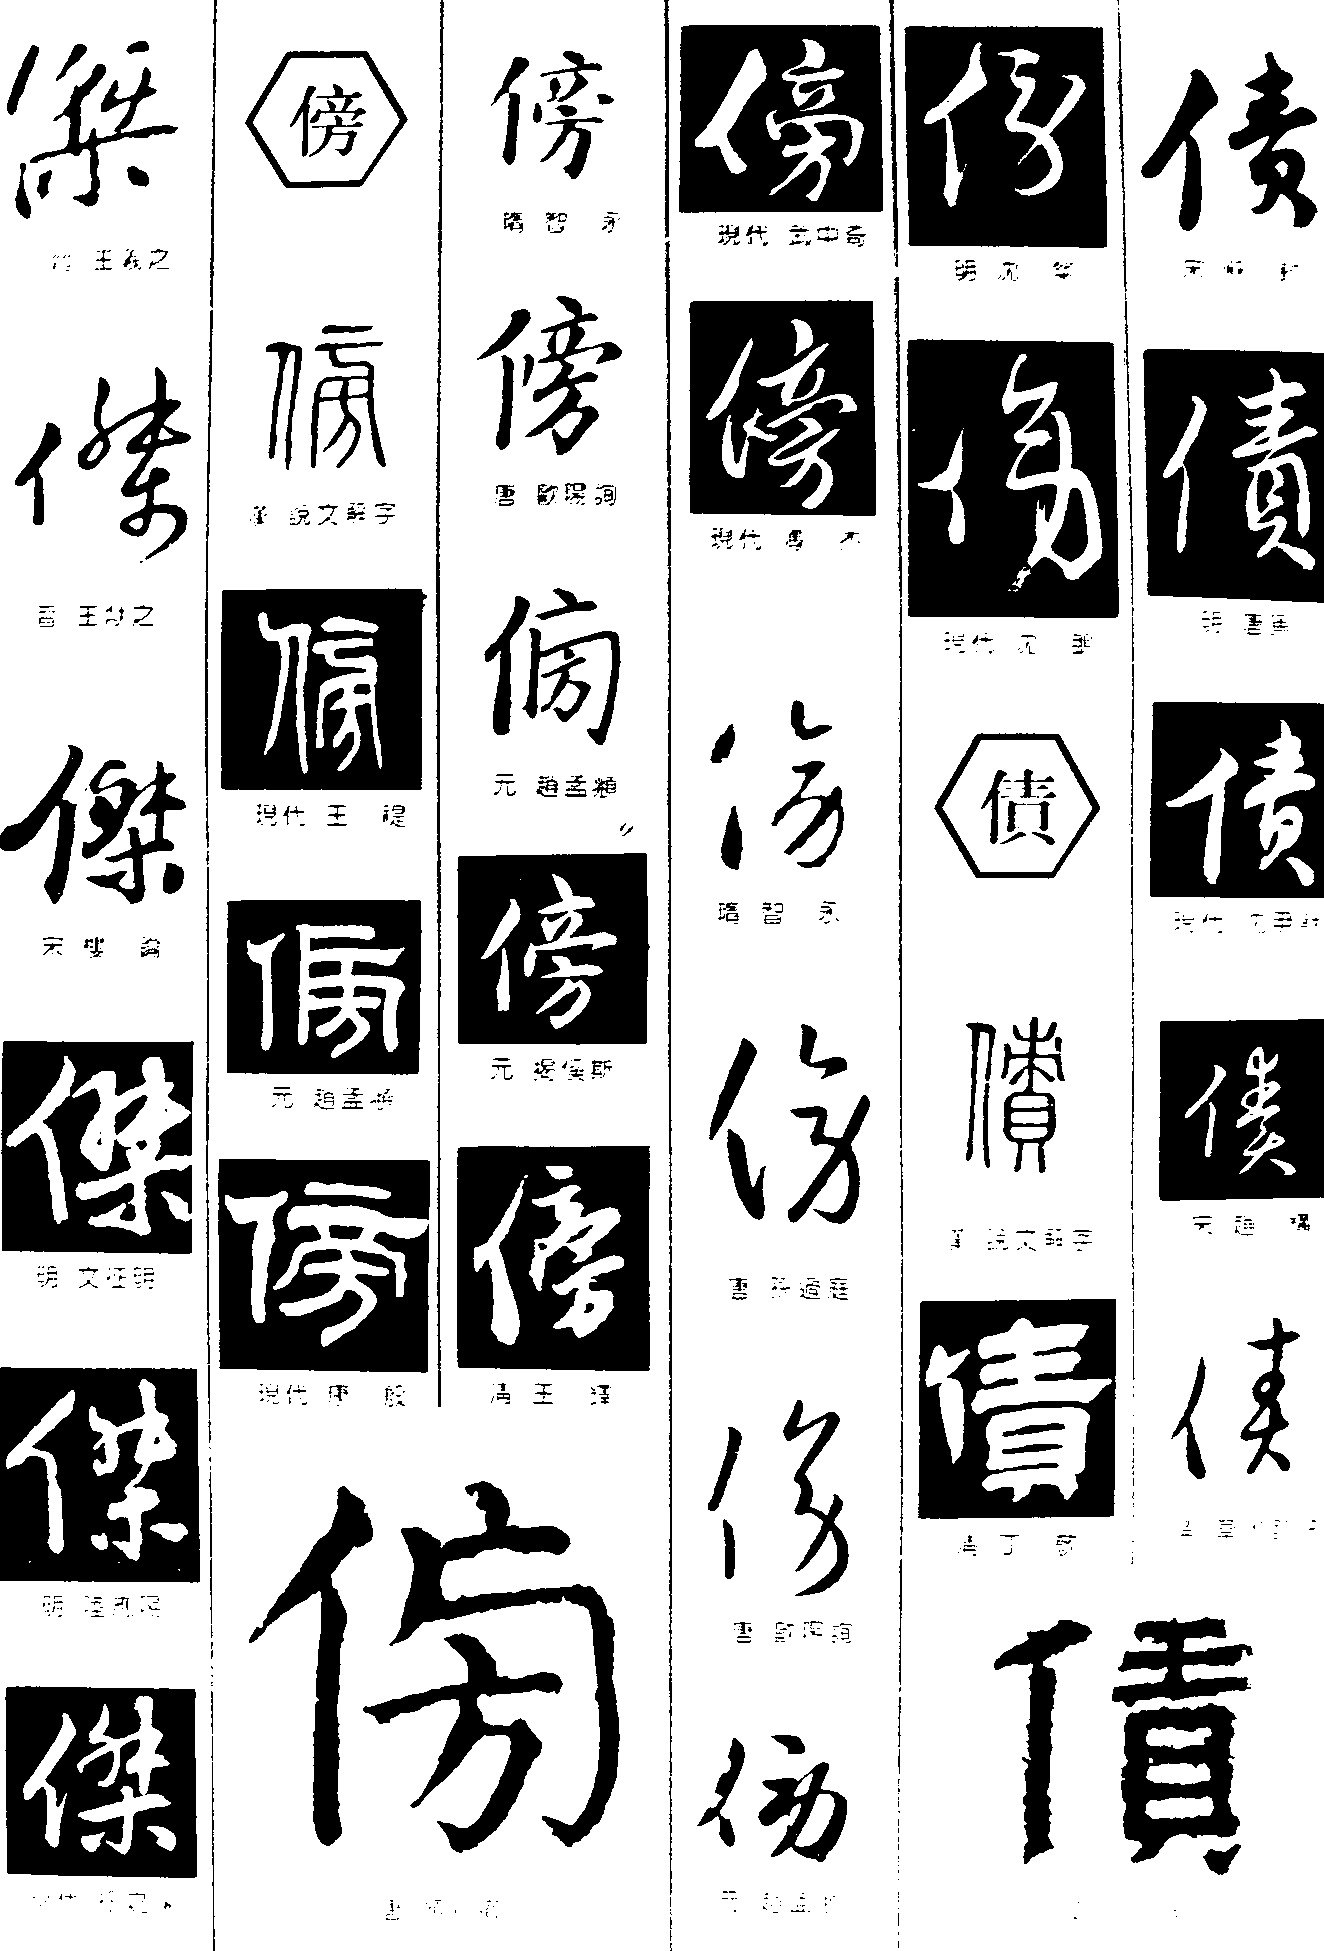 傑
王羲之
傑
晉 王獻之
傑
宋 樓
傑
明 文徵明
傑
明
傑
傍
傍
漢 說文解字
傍
現代 王禔
傍
元 趙孟頫
傍
現代 康殷
傍
唐
傍
隋 智永
傍
唐 歐陽詢
傍
元 趙孟頫
傍
元 揭傒斯
傍
清 王鐸
傍
現代
傍
現代
傍
隋 智永
傍
唐 孫過庭
傍
唐 歐陽詢
傍
元 趙孟頫
傍
明 沈粲
傍
現代 沈鵬
債
債
漢 說文解字
債
清 丁敬
債
債
宋 蘇軾
債
明 唐寅
債
現代 沈尹默
債
宋 趙構
債